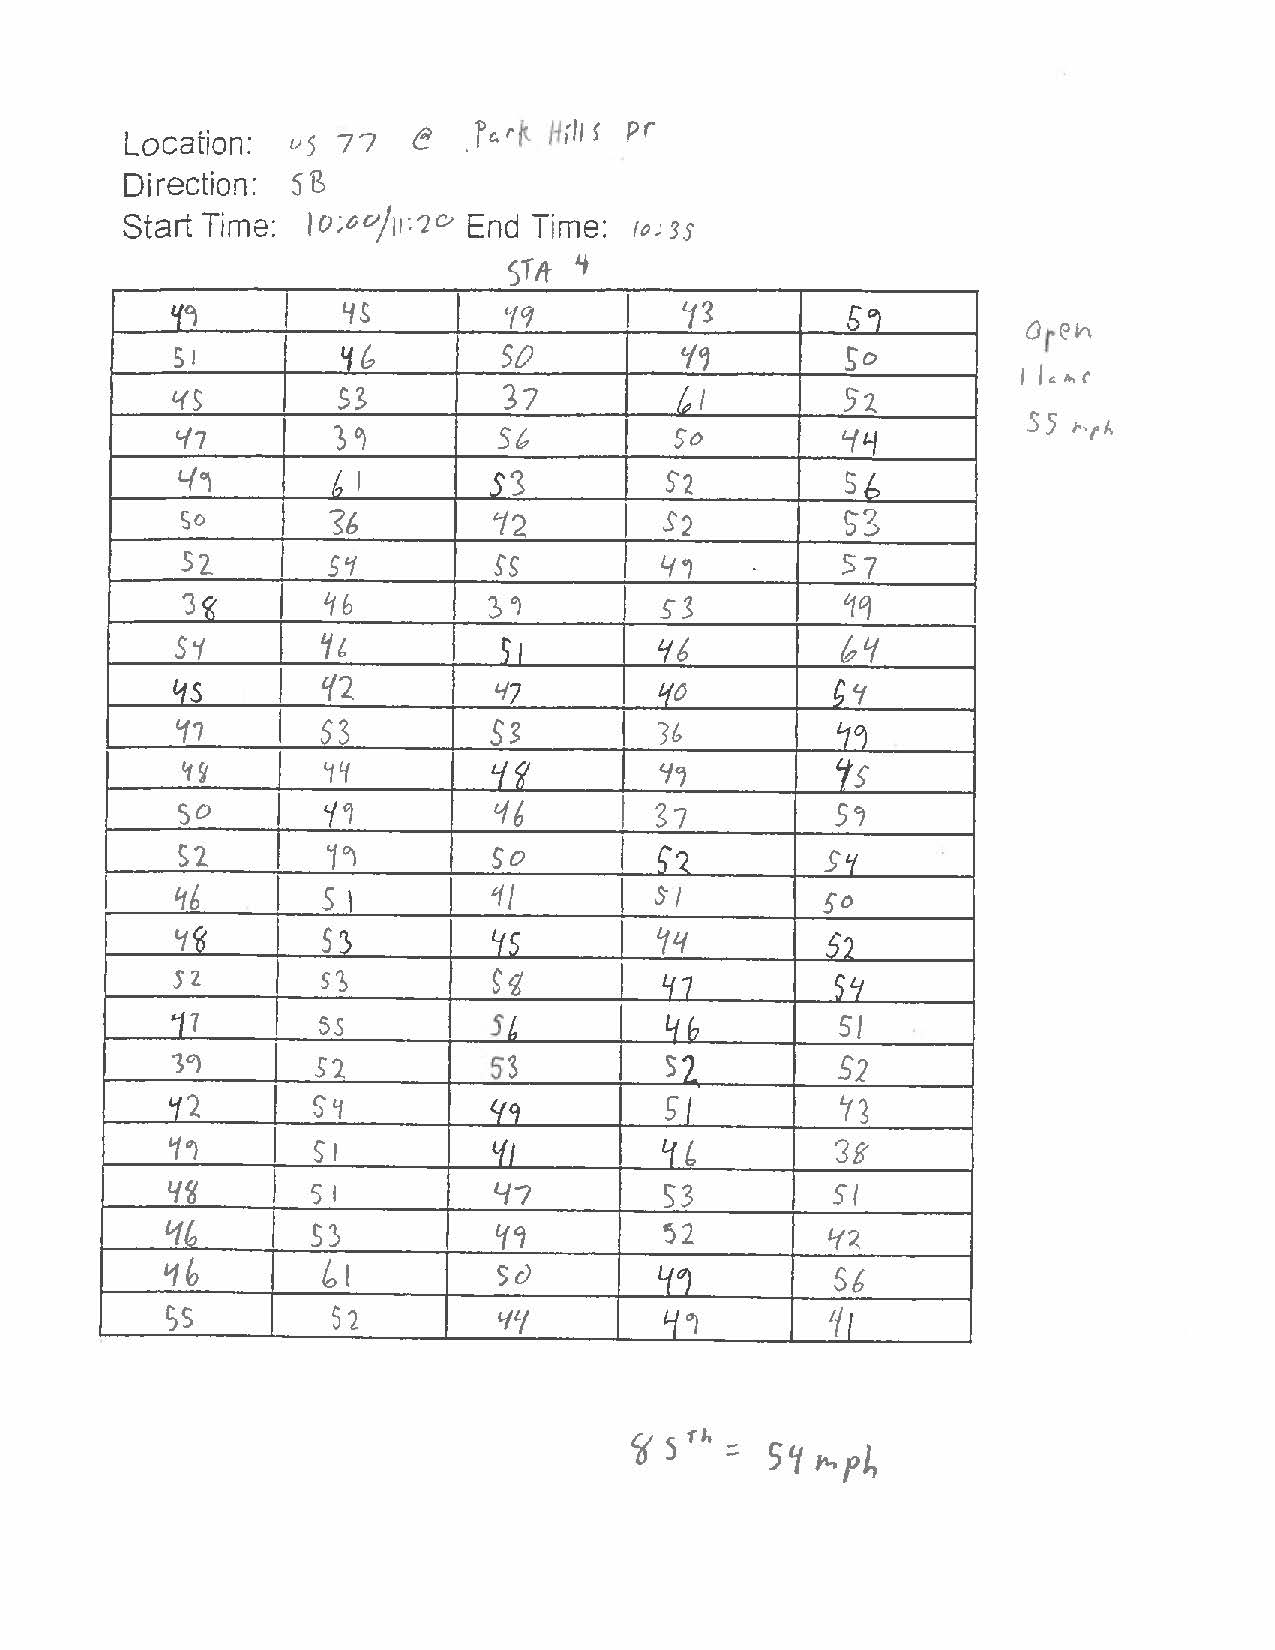 Location: US 77 @ Park Hills Dr
Direction: SB
Start Time: 10:00/11:20 End Time: 10:35
STA 4
49 45 49 43 59
Open
51 46 50 49 50
1 lane
45 53 37 61 52
55 mph
47 39 56 50 44
49 61 53 52 56
50 36 42 52 53
52 54 55 49 57
38 46 39 53 49
54 46 51 46 64
45 42 47 40 54
47 53 53 36 49
48 44 48 49 45
50 49 46 37 59
52 49 50 52 54
46 51 41 51 50
48 53 45 44 52
52 53 58 47 54
47 55 56 46 51
39 52 53 52 52
42 54 49 51 43
49 51 41 46 38
48 51 47 53 51
46 53 49 52 42
46 61 50 49 56
55 52 44 49 41
85Th = 54 mph